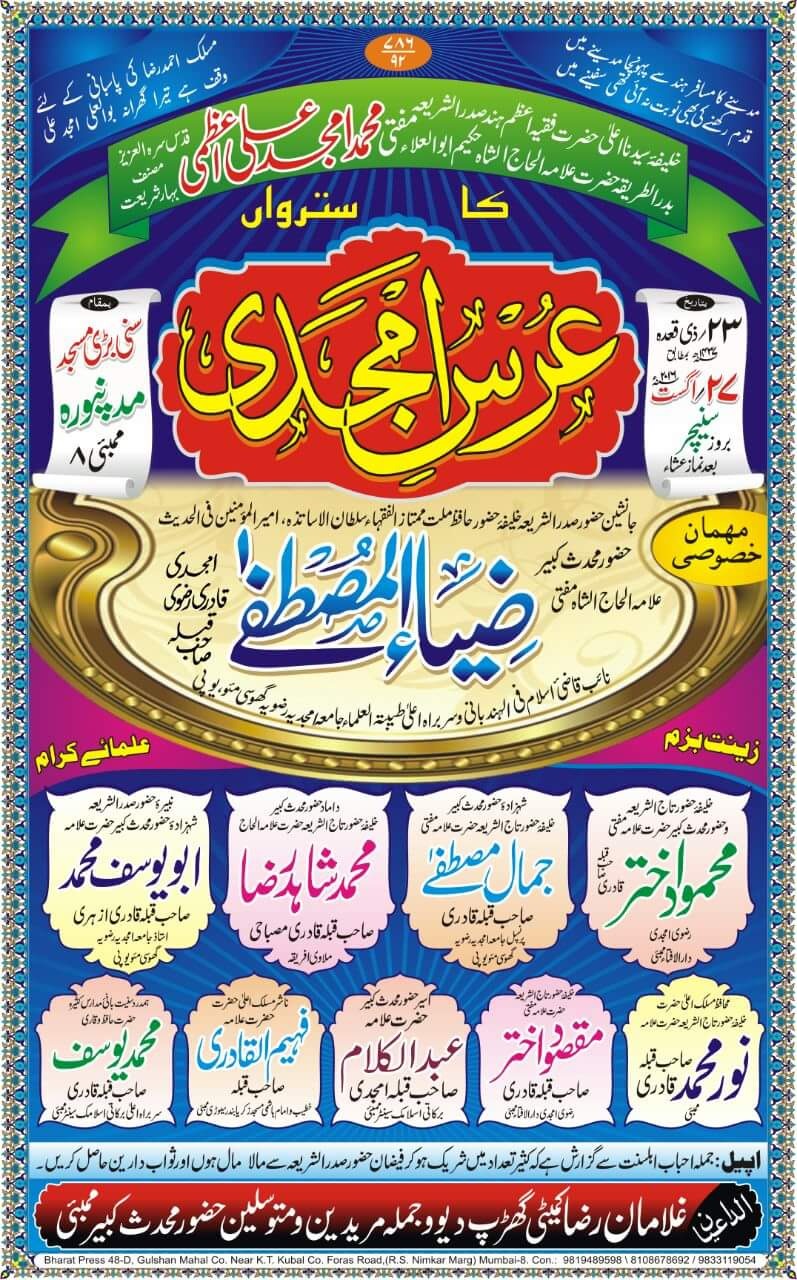 ۷۸۶
۹۲
مدینے کا مسافر ہند سے پہونچا مدینے میں
قدم رکھنے کی بھی نوبت نہ آئی تھی سفینے میں
مسلک احمد رضا کی پاسبانی کے لئے
وقف ہے تیرا گھرانہ بوالعلی امجد علی
خلیفۂ سیدنا اعلیٰ حضرت فقیہ اعظم ہند صدر الشریعہ
بدر الطریقہ حضرت علامہ الحاج الشاہ حکیم ابو العلاء
مفتی محمد امجد علی اعظمی
قدس سرہ العزیز
مصنف
بہار شریعت
کا سترواں
عُرسِ امجدی
بتاریخ
۲۳/ ذی قعدہ
۱۴۳۷ھ بمطابق
۲۷/ اگست ۲۰۱۶ء
بروز سنیچر
بعد نماز عشاء
بمقام
سنی بڑی مسجد
مدنپورہ
ممبئی ۸
مہمان خصوصی
جانشین حضور صدر الشریعہ خلیفۂ حضور حافظ ملت ممتاز الفقہاء سلطان الاساتذہ، امیر المؤمنین فی الحدیث
حضور محدث کبیر
علامہ الحاج الشاہ مفتی
ضیاء المصطفےٰ
امجدی
قادری رضوی
صاحب قبلہ
نائب قاضیٔ اسلام فی الہند بانی و سربراہ اعلیٰ طیبۃ العلماء جامعہ امجدیہ رضویہ گھوسی مئو، یوپی
زینت بزم
علمائے کرام
خلیفۂ حضور تاج الشریعہ
و حضور محدث کبیر حضرت علامہ مفتی
محمود اختر
صاحب قبلہ
قادری
رضوی امجدی
دار الافتار ممبئی
شہزادۂ حضور محدث کبیر
خلیفۂ حضور تاج الشریعہ حضرت علامہ مفتی
جمال مصطفےٰ
صاحب قبلہ قادری
پرنسپل جامعہ امجدیہ رضویہ
گھوسی مئو یوپی
داماد حضور محدث کبیر
خلیفۂ حضور تاج الشریعہ حضرت علامہ الحاج
محمد شاہد رضا
صاحب قبلہ قادری مصباحی
ملاوی افریقہ
نبیرۂ حضور صدر الشریعہ
شہزادۂ حضور محدث کبیر حضرت علامہ
ابو یوسف محمد
صاحب قبلہ قادری ازہری
استاذ جامعہ امجدیہ رضویہ
گھوسی مئو یوپی
محافظ مسلک اعلیٰ حضرت
خلیفۂ حضور تاج الشریعہ حضرت علامہ
نور محمد
صاحب قبلہ
قادری
ممبئی
خلیفۂ حضور تاج الشریعہ
حضرت علامہ مفتی
مقصود اختر
صاحب قبلہ قادری
رضوی امجدی دار الافتار ممبئی
اسیر حضور محدث کبیر
حضرت علامہ
عبد الکلام
صاحب قبلہ امجدی
برکاتی اسلامک سینٹر ممبئی
ناشر مسلک اعلیٰ حضرت
حضرت علامہ
فہیم القادری
صاحب قبلہ
خطیب و امام ہاشمی مسجد
ہمدرد سنیت بانیٔ مدارس کثیرہ
حضرت حافظ و قاری
محمد یوسف
صاحب قبلہ قادری
سربراہ اعلیٰ برکاتی اسلامک سینٹر ممبئی
اپیل: جملہ احباب اہلسنت سے گزارش ہے کہ کثیر تعداد میں شریک ہو کر فیضان حضور صدر الشریعہ سے مالا مال ہوں اور ثواب دارین حاصل کریں۔
الداعین
غلامان رضا کمیٹی گھڑپ دیو و جملہ مریدین و متوسلین حضور محدث کبیر ممبئی
Bharat Press 48-D, Gulshan Mahal Co. Near K.T. Kubal Co. Foras Road,(R.S. Nimkar Marg) Mumbai-8. Con.: 9819489598 \ 8108678692 / 9833119054